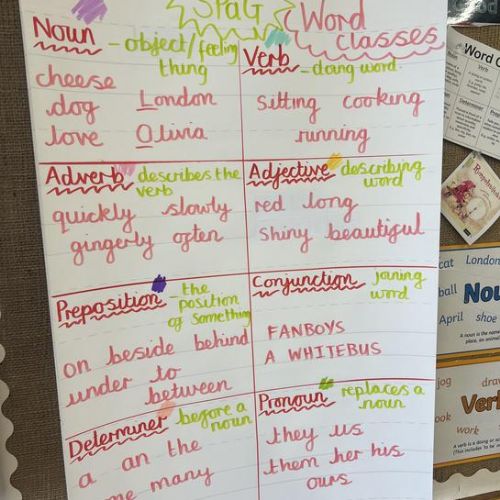 SPaG
Word
Classes
Noun - object/feeling
thing
cheese
dog London
love Olivia
Verb
- doing word
sitting cooking
running
Adverb describes the
verb
quickly slowly
gingerly often
Adjective describing
word
red long
shiny beautiful
Preposition - the
position
of something
on beside behind
under to
between
Conjunction joining
word
FANBOYS
A WHITEBUS
Determiner before a
noun
a an the
many
Pronoun replaces a
noun
they us
them her his
ours
Word
Noun
Verb
cat London
ball Nou
April shoe
jog draw
Verb
work